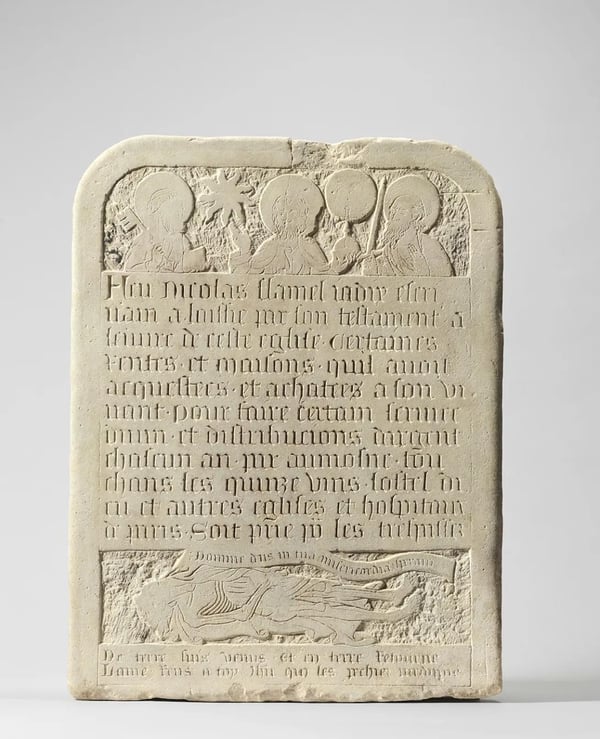 Feu Nicolas flamel iadiz escri
uain a laissie par son testament a
leuure de ceste eglise certaines
Rentes · et maisons · quil auoit
acquestees · et achatees a son vi
uant · pour faire certain seruice
diuin · et distribucions dargent
chascun an · par aumosne · tou
chans les quinze vins · lostel di
eu et autres eglises et hospitaux
de paris · Soit prie pour les trespassez
Domine deus in tua misericordia speraui
De terre suis venus Et en terre Retourne
Lame Rens a toy ihu qui les pechiez pardonne